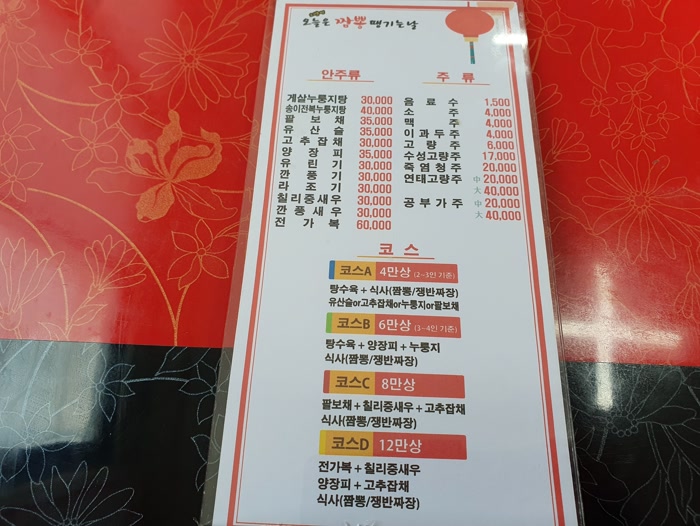 오늘은 짬뽕 땡기는날
안주류
게살누룽지탕 30,000
송이전복누룽지탕 40,000
팔보채 35,000
유산슬 35,000
고추잡채 30,000
양장피 35,000
유린기 30,000
깐풍기 30,000
라조기 30,000
칠리중새우 30,000
깐풍새우 30,000
전가복 60,000
주류
음료수 1,500
소주 4,000
맥주 4,000
이과두주 4,000
고량주 6,000
수성고량주 17,000
죽염청주 20,000
연태고량주 中 20,000
大 40,000
공부가주 中 20,000
大 40,000
코스
코스A 4만상 (2~3인 기준)
탕수육 + 식사(짬뽕/쟁반짜장)
유산슬or고추잡채or누룽지or팔보채
코스B 6만상 (3~4인 기준)
탕수육 + 양장피 + 누룽지
식사(짬뽕/쟁반짜장)
코스C 8만상
팔보채 + 칠리중새우 + 고추잡채
식사(짬뽕/쟁반짜장)
코스D 12만상
전가복 + 칠리중새우
양장피 + 고추잡채
식사(짬뽕/쟁반짜장)